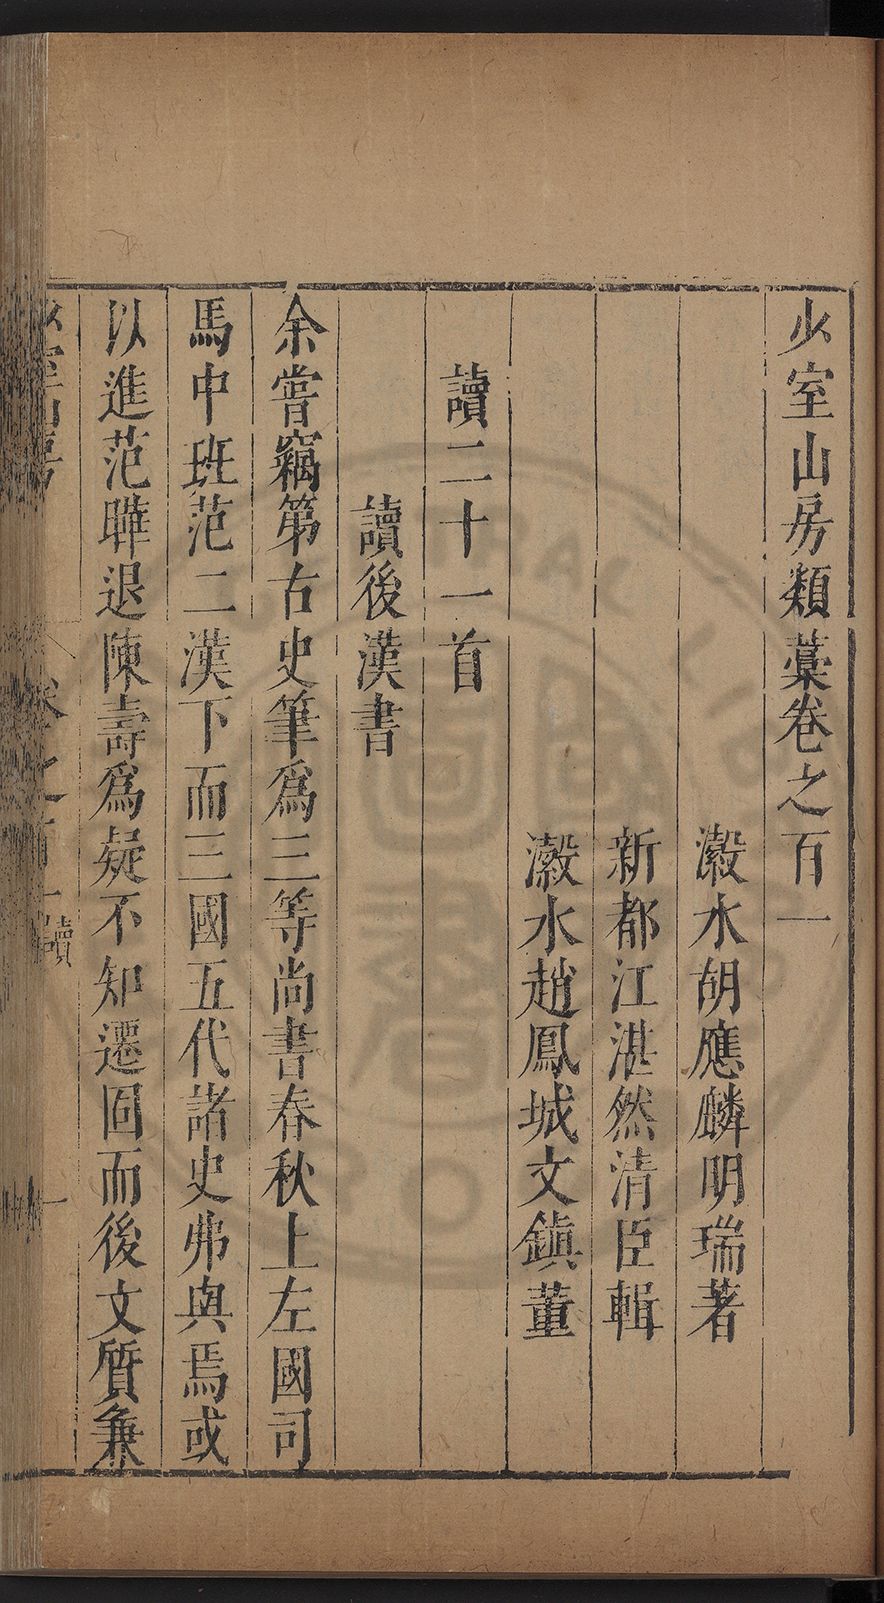 少室山房類藁卷之百一
瀔水胡應麟明瑞著
新都江湛然清臣輯
瀔水趙鳳城文鎮董
讀二十一首
讀後漢書
余嘗竊第古史筆爲三等尚書春秋上左國司
馬中班范二漢下而三國五代諸史弗與焉或
以進范曄退陳壽爲疑不知遷固而後文質兼
少室山房
卷之百一讀
一